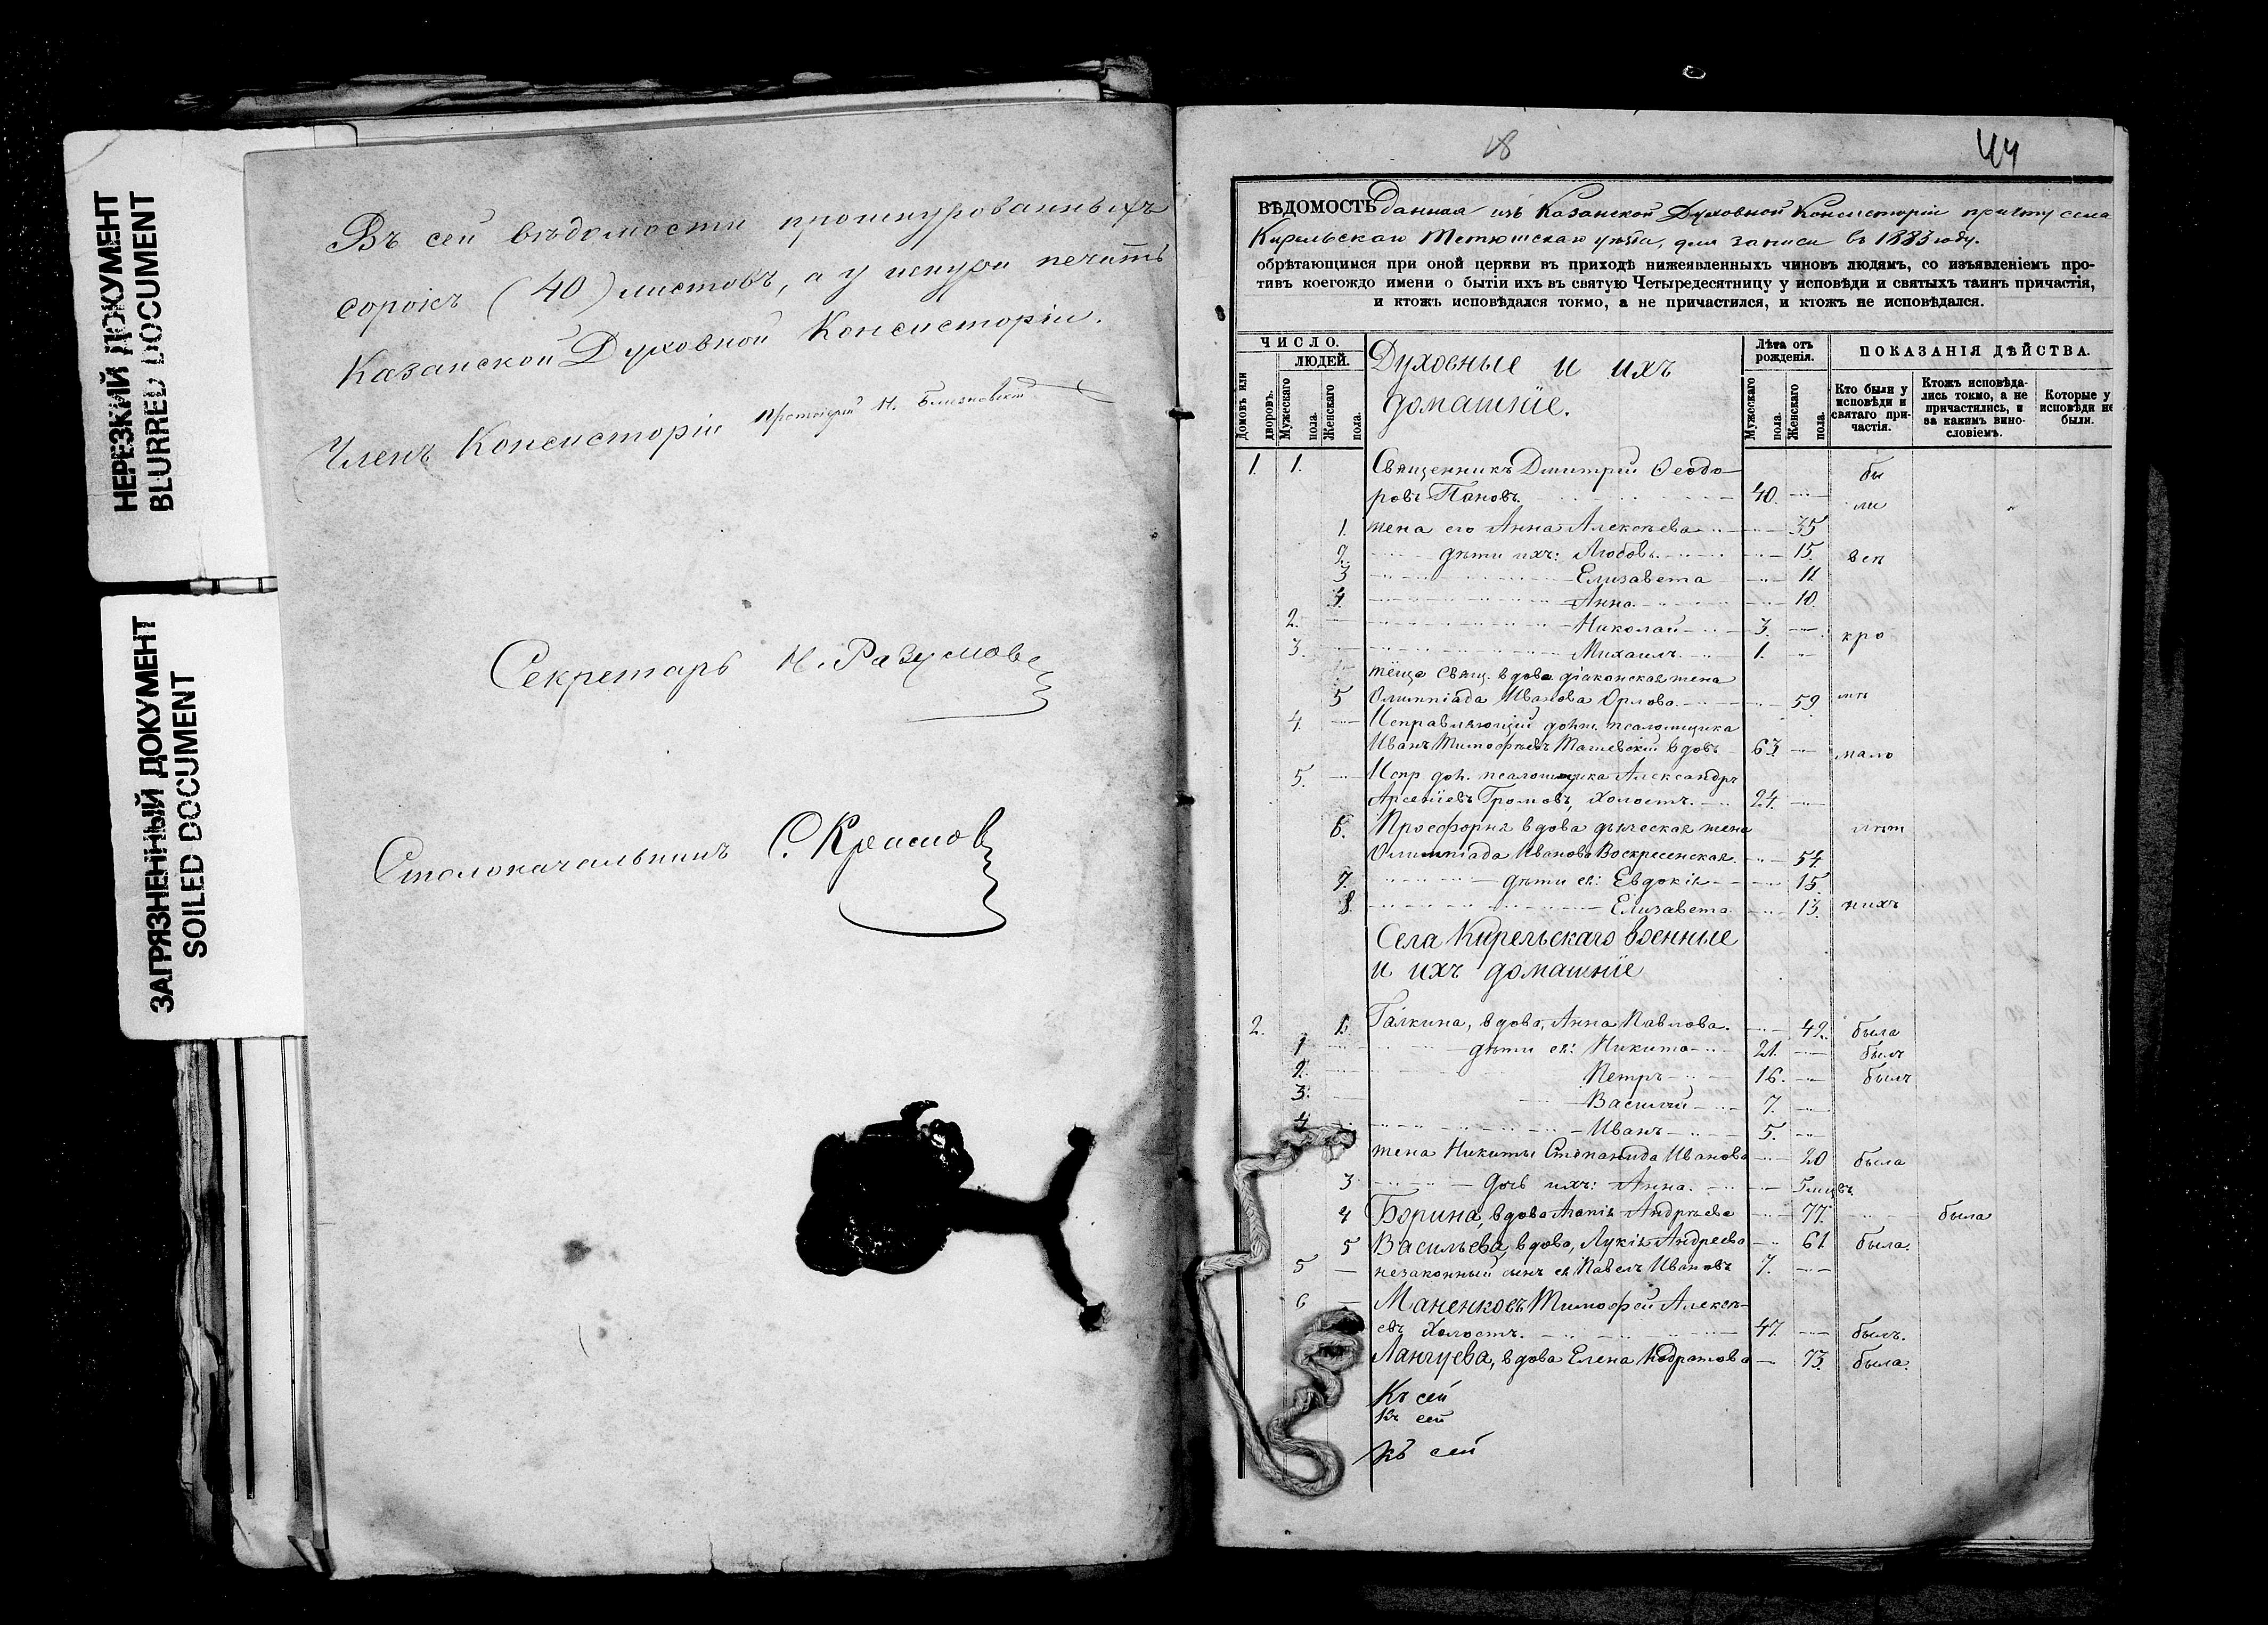 НЕРЕЗКИЙ ДОКУМЕНТ
BLURRED DOCUMENT
ЗАГРЯЗНЕННЫЙ ДОКУМЕНТ
SOILED DOCUMENT
Въ сей вѣдомости прошнурованныхъ
сорокъ (40) листовъ, а у шнура печать
Казанской Духовной Консисторіи.
Членъ Консисторіи Протоіерей
Секретарь Н. Разумовъ
Столоначальникъ С.
18
44
ВѢДОМОСТЬ данная изъ Казанской Духовной Консисторіи причту села
Кирельскаго Тетюшскаго уѣзда, для записи въ 1883 году.
обрѣтающимся при оной церкви въ приходѣ нижеявленныхъ чиновъ людямъ, со изъявленіемъ про-
тивъ коегождо имени о бытіи ихъ въ святую Четыредесятницу у исповѣди и святыхъ таинъ причастія,
и ктожъ исповѣдался токмо, а не причастился, и ктожъ не исповѣдался.
ЧИСЛО.
ЛЮДЕЙ.
Домовъ или дворовъ.
Мужескаго пола.
Женскаго пола.
Духовные и ихъ
домашніе.
Лѣта отъ рожденія.
Мужескаго пола.
Женскаго пола.
ПОКАЗАНІЯ ДѢЙСТВА.
Кто были у исповѣди и святаго при-частія.
Ктожъ исповѣда-лись токмо, а не причастились, и за какимъ вино-словіемъ.
Которые у исповѣди не были.
1. 1. Священникъ Дмитрій Ѳеодо- бы
ровъ Пановъ. 40. ли
1. жена его Анна Алексѣева 35
2. дѣти ихъ: Любовь 15. всѣ
3 Елизавета 11
4. Анна 10.
2. Николай 3. кро
3. Михаилъ 1.
теща Свящ. вдова діаконская жена
5 Олимпіада Иванова Орлова 59. мѣ
4. Исправляющій долж. псаломщика
Иванъ Тимофѣевъ вдовъ 63 мало
5. Испр. дол. псаломщика Александръ
Арсеніевъ Громовъ, холостъ. 24.
6. Просфорня вдова дьяческая жена лѣт
Олимпіада Иванова Воскресенская 54.
7. дѣти ея: Евдокія 15.
8. Елизавета 13. нихъ
Села Кирельскаго военные
и ихъ домашніе
2. 1. Галкина, вдова, Анна Павлова. 42. была
1 дѣти ея: Никита 21. былъ
2. Петръ 16. былъ
3. Василій 7.
4 Иванъ 5.
жена Никиты Степанида Иванова 20 была
3 дочь ихъ: Анна.
4 Борина, вдова Андрѣева 77. была
5 Васильева, вдова, Лукія Андреева 61 была.
5 незаконный сынъ ея Павелъ Ивановъ 7.
6 Маненковъ Тимофей Алексѣ-
евъ холостъ. 47. былъ.
Лангуева, вдова Елена 73. была.
Къ сей
Къ сей
Къ сей